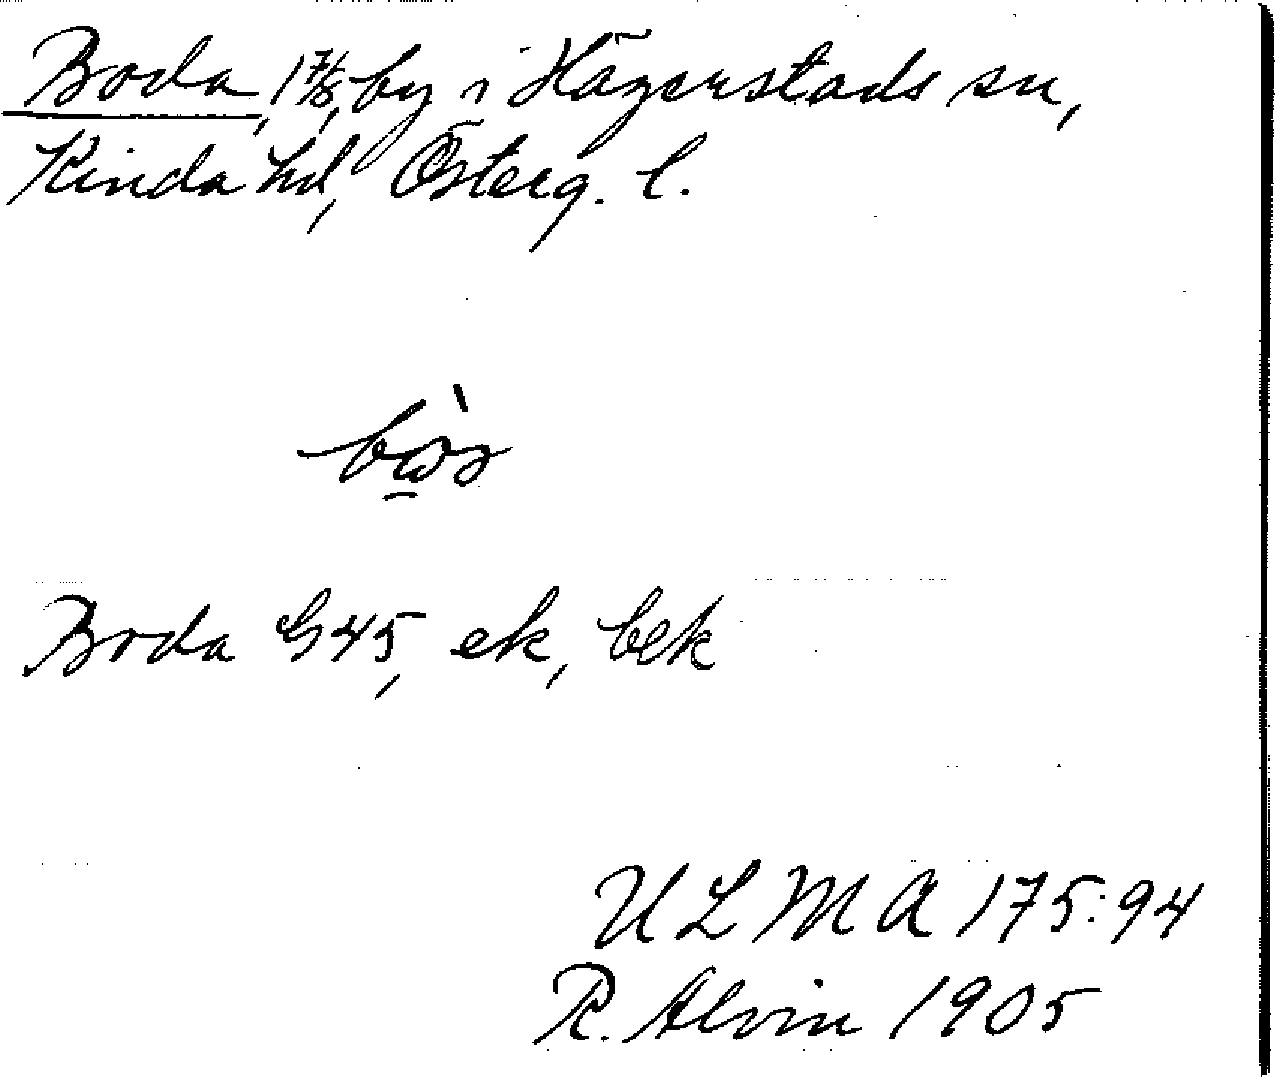 Boda, 1 7/8, by i Hägerstads sn,
Kinda hd, Österg. l.
Boda G45, ek, bek
ULMA 175:94
R. Alvin 1905